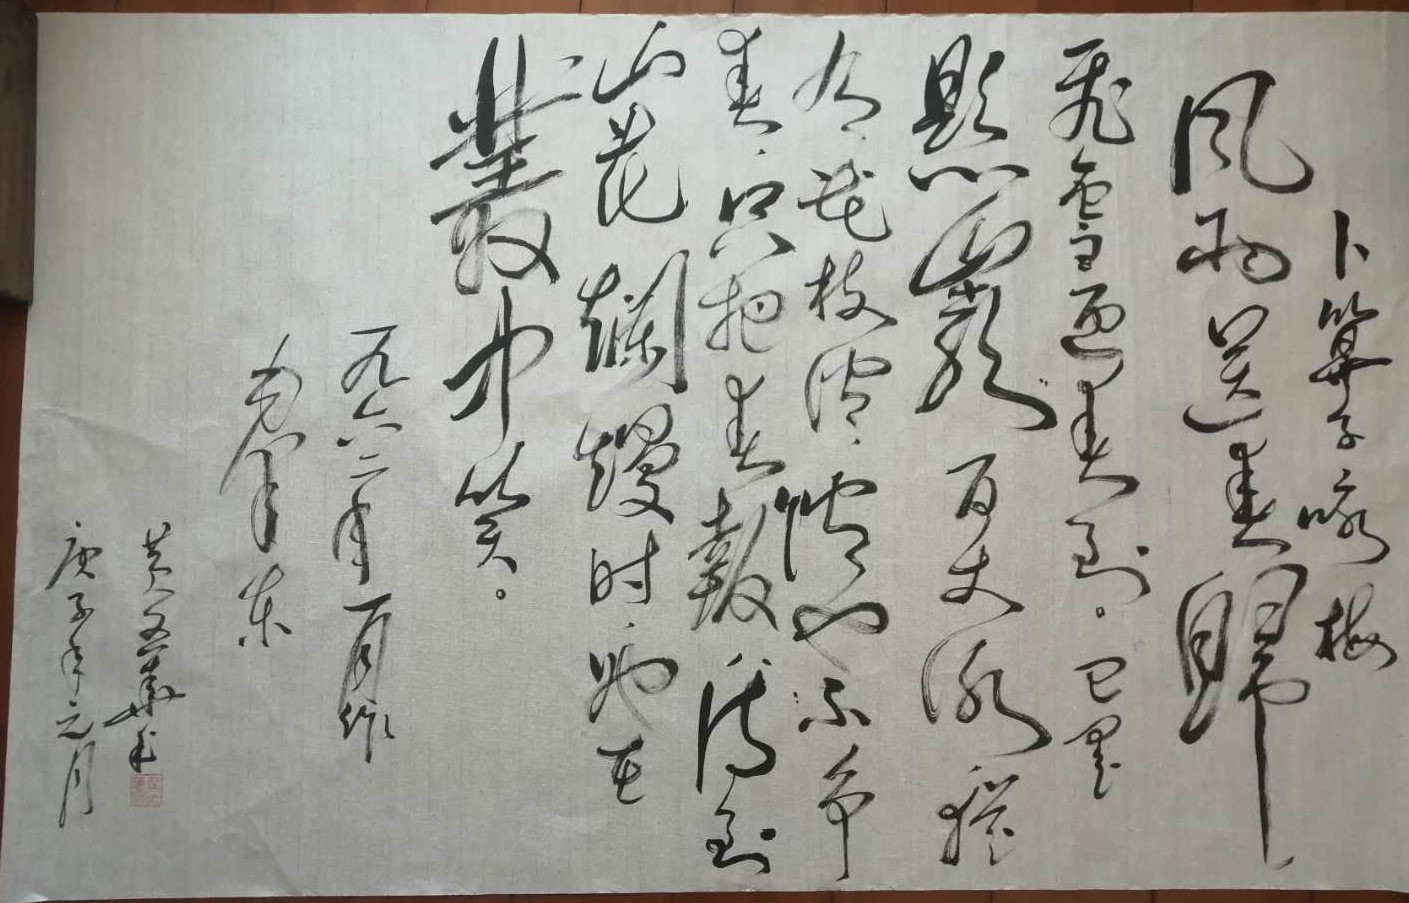 卜算子咏梅
风雨送春歸
飛雪迎春到。已是
懸崖百丈冰猶
有花枝俏俏也不争
春只把春報待到
山花爛熳时她在
叢中笑。
一九六二年一月作
毛澤东
黄華书
庚子年元月